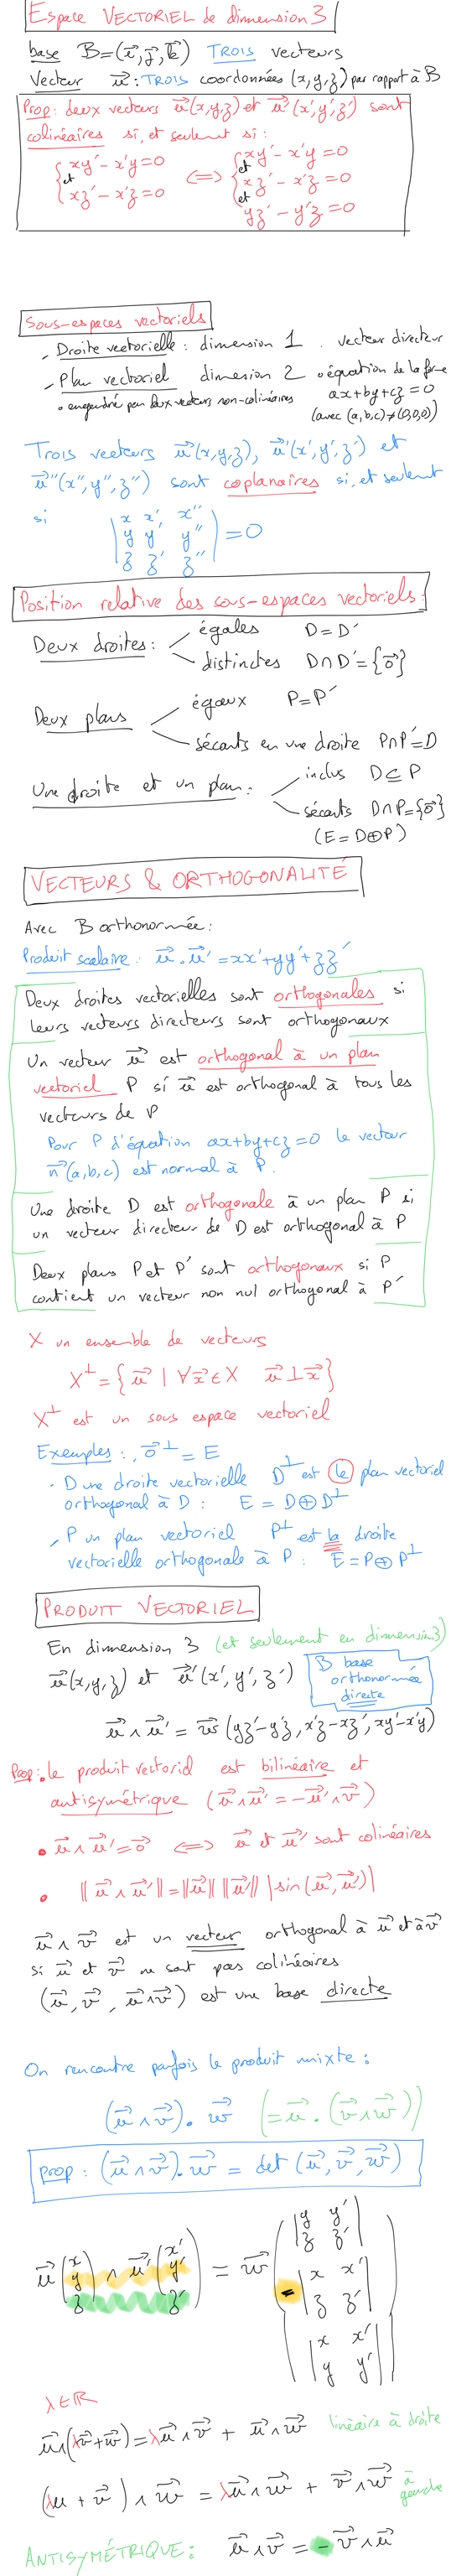 Espace VECTORIEL de dimension 3
base B=(i⃗, j⃗, k⃗) TROIS vecteurs
Vecteur u⃗ : TROIS coordonnées (x,y,z) par rapport à B
Prop : deux vecteurs u⃗(x,y,z) et u⃗'(x',y',z') sont
colinéaires si, et seulement si :
{ xy' - x'y = 0 et xz' - x'z = 0 <=> { xy' - x'y = 0 et xz' - x'z = 0 et yz' - y'z = 0
Sous-espaces vectoriels
- Droite vectorielle : dimension 1 . vecteur directeur
- Plan vectoriel dimension 2 • équation de la forme
• engendré par deux vecteurs non-colinéaires ax+by+cz = 0
(avec (a,b,c) ≠ (0,0,0))
Trois vecteurs u⃗(x,y,z), u⃗'(x',y',z') et
u⃗''(x'',y'',z'') sont coplanaires si, et seulement
si
| x x' x'' |
| y y' y'' | = 0
| z z' z'' |
Position relative des sous-espaces vectoriels :
Deux droites : égales D = D'
distinctes D∩D' = {o⃗}
Deux plans égaux P = P'
sécants en une droite P∩P' = D
Une droite et un plan : inclus D ⊆ P
sécants D∩P = {o⃗}
(E = D⊕P)
VECTEURS & ORTHOGONALITÉ
Avec B orthonormée :
Produit scalaire : u⃗ . u⃗' = xx' + yy' + zz'
Deux droites vectorielles sont orthogonales si
leurs vecteurs directeurs sont orthogonaux
Un vecteur u⃗ est orthogonal à un plan
vectoriel P si u⃗ est orthogonal à tous les
vecteurs de P
Pour P d'équation ax+by+cz = 0 le vecteur
n⃗(a,b,c) est normal à P.
Une droite D est orthogonale à un plan P si
un vecteur directeur de D est orthogonal à P
Deux plans P et P' sont orthogonaux si P
contient un vecteur non nul orthogonal à P'
X un ensemble de vecteurs
X⊥ = { u⃗ | ∀x⃗ ∈ X u⃗ ⊥ x⃗ }
X⊥ est un sous espace vectoriel
Exemples : . o⃗⊥ = E
. D une droite vectorielle D⊥ est le plan vectoriel
orthogonal à D : E = D⊕D⊥
. P un plan vectoriel P⊥ est la droite
vectorielle orthogonale à P : E = P⊕P⊥
PRODUIT VECTORIEL
En dimension 3 (et seulement en dimension 3)
u⃗(x,y,z) et u⃗'(x',y',z') B base
orthonormée
directe
u⃗ ∧ u⃗' = w⃗ (yz'-y'z, x'z-xz', xy'-x'y)
Prop : le produit vectoriel est bilinéaire et
antisymétrique (u⃗∧u⃗' = -u⃗'∧v⃗)
• u⃗∧u⃗' = o⃗ <=> u⃗ et u⃗' sont colinéaires
• ||u⃗∧u⃗'|| = ||u⃗|| ||u⃗'|| |sin(u⃗,u⃗')|
u⃗∧v⃗ est un vecteur orthogonal à u⃗ et à v⃗
si u⃗ et v⃗ ne sont pas colinéaires
(u⃗, v⃗, u⃗∧v⃗) est une base directe
On rencontre parfois le produit mixte :
(u⃗∧v⃗) . w⃗ (= u⃗ . (v⃗∧w⃗))
prop : (u⃗∧v⃗) . w⃗ = det (u⃗, v⃗, w⃗)
u⃗ (x y z) ∧ u⃗' (x' y' z') = w⃗ ( |y y'|
|z z'|
- |x x'|
|z z'|
|x x'|
|y y'| )
λ∈ℝ
u⃗∧(λv⃗+w⃗) = λu⃗∧v⃗ + u⃗∧w⃗ linéaire à droite
(λu + v⃗) ∧ w⃗ = λu⃗∧w⃗ + v⃗∧w⃗ à gauche
ANTISYMÉTRIQUE : u⃗∧v⃗ = - v⃗∧u⃗